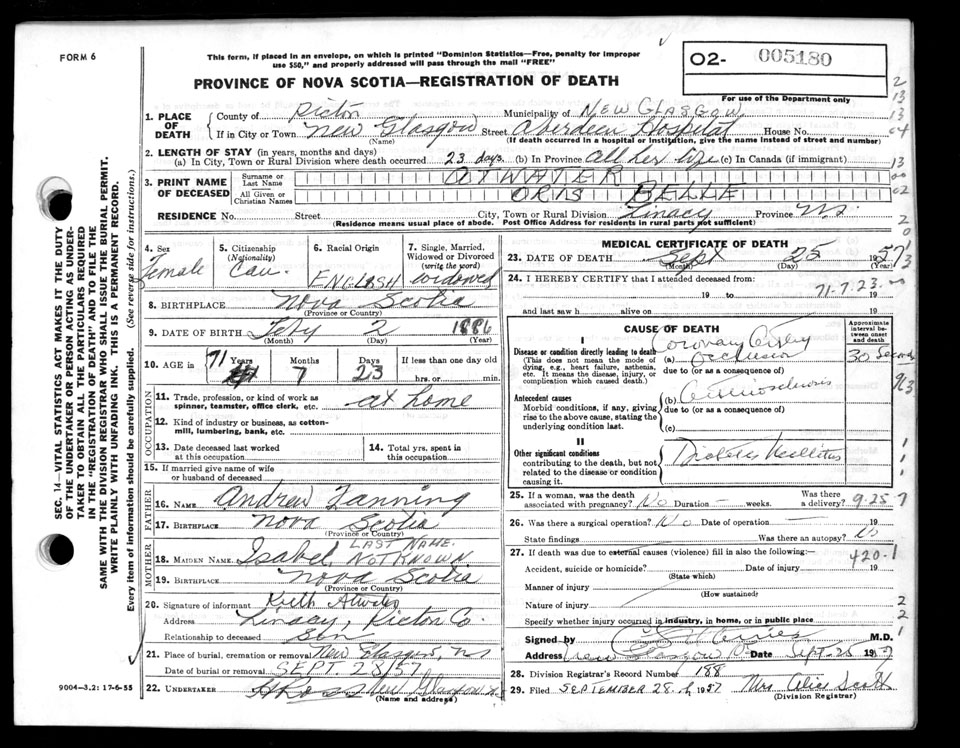 FORM 6
This form, if placed in an envelope, on which is printed "Dominion Statistics—Free, penalty for improper
use $50," and properly addressed will pass through the mail "FREE"
02- 005180
PROVINCE OF NOVA SCOTIA—REGISTRATION OF DEATH
For use of the Department only
1. PLACE OF DEATH
County of Pictou Municipality of NEW GLASGOW
If in City or Town New Glasgow Street Aberdeen Hospital House No.
(Name) (If death occurred in a hospital or institution, give the name instead of street and number)
2. LENGTH OF STAY (in years, months and days)
(a) In City, Town or Rural Division where death occurred 23 days. (b) In Province all her life (c) In Canada (if immigrant)
3. PRINT NAME OF DECEASED
Surname or Last Name ATWATER
All Given or Christian Names ORIS BELLE
RESIDENCE No. Street City, Town or Rural Division Linacy Province N.S.
(Residence means usual place of abode. Post Office Address for residents in rural parts not sufficient)
4. Sex Female
5. Citizenship (Nationality) Can.
6. Racial Origin ENGLISH
7. Single, Married, Widowed or Divorced (write the word) widowed
8. BIRTHPLACE Nova Scotia
(Province or Country)
9. DATE OF BIRTH Feby 2 1886
(Month) (Day) (Year)
10. AGE in 71 Years 7 Months 23 Days If less than one day old
hrs. or min.
OCCUPATION
11. Trade, profession, or kind of work as spinner, teamster, office clerk, etc. at home
12. Kind of industry or business, as cotton-mill, lumbering, bank, etc.
13. Date deceased last worked at this occupation
14. Total yrs. spent in this occupation
15. If married give name of wife or husband of deceased
FATHER
16. NAME Andrew Fanning
17. BIRTHPLACE Nova Scotia
(Province or Country)
MOTHER
18. MAIDEN NAME Isabel, LAST NAME NOT KNOWN
19. BIRTHPLACE Nova Scotia
(Province or Country)
20. Signature of informant Keith Atwater
Address Linacy, Pictou Co.
Relationship to deceased Son
21. Place of burial, cremation or removal New Glasgow, NS
Date of burial or removal SEPT. 28/57
22. UNDERTAKER New Glasgow
(Name and address)
9004-3.2: 17-6-55
MEDICAL CERTIFICATE OF DEATH
23. DATE OF DEATH Sept 25 1957
(Month) (Day) (Year)
24. I HEREBY CERTIFY that I attended deceased from:
19 to 19
71-7-23
and last saw h alive on 19
CAUSE OF DEATH
Approximate interval between onset and death
I
Disease or condition directly leading to death (a) Coronary Artery Occlusion 30 Seconds
(This does not mean the mode of dying, e.g., heart failure, asthenia, etc. It means the disease, injury, or complication which caused death.)
due to (or as a consequence of)
Antecedent causes
Morbid conditions, if any, giving rise to the above cause, stating the underlying condition last.
(b) Arteriosclerosis
due to (or as a consequence of)
(c)
II
Other significant conditions
contributing to the death, but not related to the disease or condition causing it.
Diabetes Mellitus
25. If a woman, was the death associated with pregnancy? No Duration — weeks. Was there a delivery?
9-25-7
26. Was there a surgical operation? No Date of operation — 19
State findings Was there an autopsy? No
27. If death was due to external causes (violence) fill in also the following:—
420-1
Accident, suicide or homicide? Date of injury 19
(State which)
Manner of injury
(How sustained)
Nature of injury
Specify whether injury occurred in industry, in home, or in public place
Signed by M.D.
Address New Glasgow Date Sept-25 1957
28. Division Registrar's Record Number 188
29. Filed SEPTEMBER 28 1957 Mrs Alice Scott
(Division Registrar)
SEC. 14—VITAL STATISTICS ACT MAKES IT THE DUTY
OF THE UNDERTAKER OR PERSON ACTING AS UNDER-
TAKER TO OBTAIN ALL THE PARTICULARS REQUIRED
IN THE "REGISTRATION OF DEATH" AND TO FILE THE
SAME WITH THE DIVISION REGISTRAR WHO SHALL ISSUE THE BURIAL PERMIT.
WRITE PLAINLY WITH UNFADING INK. THIS IS A PERMANENT RECORD.
Every item of information should be carefully supplied. (See reverse side for instructions.)